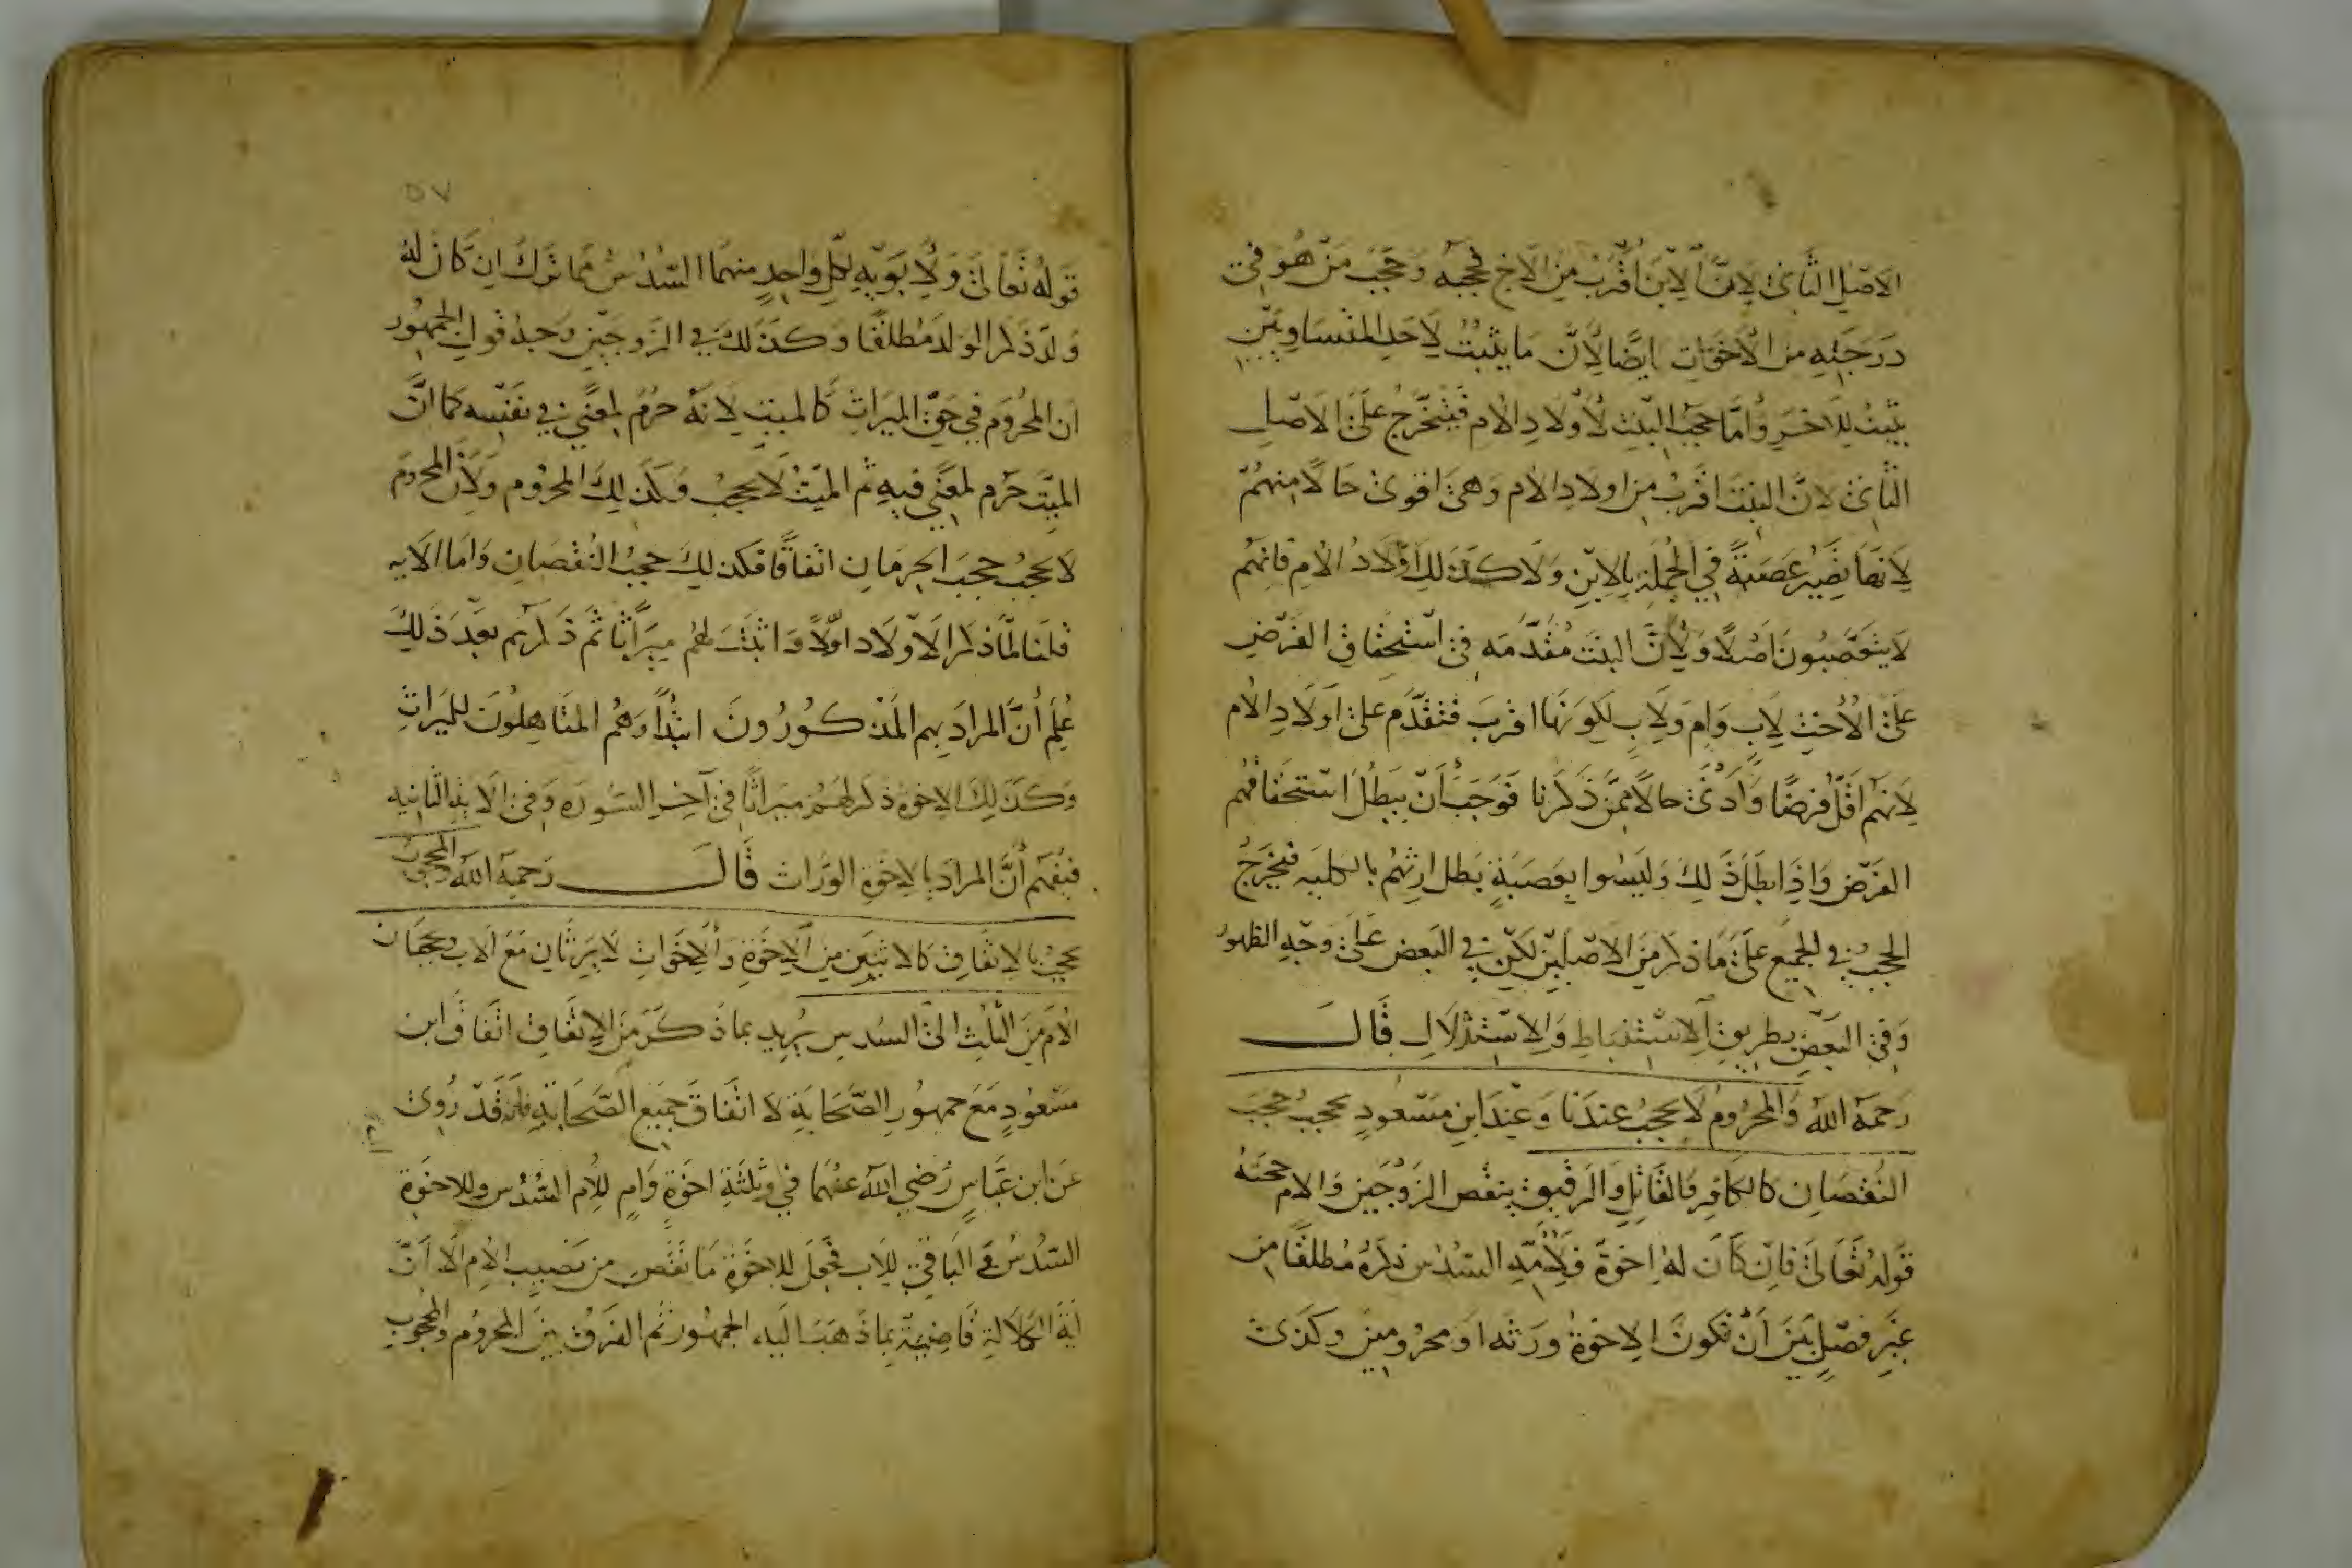 الاصل الثاني لانّ الابن اقرب من الاخ فحجبه وحجب من هو في
درجته من الاخوات ايضا لانّ ما يثبت لاحد المتساويين
يثبت للاخر وامّا حجب البنت لاولاد الام فيتخرّج على الاصل
الثاني لانّ البنت اقرب من اولاد الام وهي اقوى حالا منهم
لانها تصير عصبة في الجملة بالابن ولا كذلك اولاد الام فانهم
لا يتعصبون اصلا ولانّ البنت مقدّمه في استحقاق الفرض
على الاخت لاب وام ولاب لكونها اقرب فتقدّم على اولاد الام
لانهم اقلّ فرضا وادنى حالا ممن ذكرنا فوجب ان يبطل استحقاقهم
الفرض واذا بطل ذلك وليسوا بعصبة بطل ارثهم بالكلية فيخرج
الحجب في الجميع على ما ذكر من الاصلين لكن في البعض على وجه الظهور
وفي البعض بطريق الاستنباط والاستدلال قال
رحمه الله والمحروم لا يحجب عندنا وعند ابن مسعود يحجب حجب
النقصان كالكافر والقاتل والرقيق ينقص الزوجين والام حجته
قوله تعالى فان كان له اخوة فلامّه السدس ذكره مطلقا من
غير فصل بين ان تكون الاخوة ورثه او محرومين وكذى
٥٧
قوله تعالى ولابويه لكل واحد منهما السدس مما ترك ان كان له
ولد ذكر الولد مطلقا وكذلك في الزوجين وجه قول الجمهور
ان المحروم في حق الميراث كالميت لانه حرم لمعنى في نفسه كما انّ
الميّت حرم لمعنى فيه ثم الميت لا يحجب فكذلك المحروم ولان المحروم
لا يحجب حجب الحرمان اتفاقا فكذلك حجب النقصان واما الايه
قلنا لمّا ذكر الاولاد اوّلا واثبت لهم ميراثا ثم ذكرهم بعد ذلك
علم أنّ المراد بهم المذكورون ابتدأ وهم المتاهلون للميراث
وكذلك الاخوة ذكر لهم ميراثا في آخر السوره وفي الاية الثانيه
فيفهم أنّ المراد بالاخوة الوراث قال رحمه الله والمحجوب
يحجب بالاتفاق كالاثنين من الاخوة والاخوات لا يرثان مع الاب ويحجبان
الام من الثلث الى السدس يريد بما ذكر من الاتفاق اتفاق ابن
مسعود مع جمهور الصحابة لا اتفاق جميع الصحابة فقد روى
عن ابن عباس رضي الله عنهما في ثلثة اخوة وام للام السدس وللاخوة
السدس والباقي للاب فجعل للاخوة ما نقص من نصيب الام الا انّ
اية الكلالة قاضية بما ذهب اليه الجمهور ثم الفرق بين المحروم والمحجوب